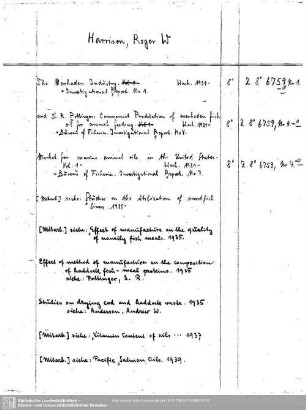 Harrison, Roger W
The Menhaden Industry. Wash. 1931- 8° Z. 8° 6759, No 1
= Investigational Report No 1.
and S. R. Pottinger: Commercial Production of menhaden fish
oil for animal feeding Wash. 1931- 8° Z. 8° 6759, No 4
= Bureau of Fisheries. Investigational Report No 4.
Market for marine animal oils in the United States.
Vol. 1- Wash. 1931- 8° Z. 8° 6759, No 7
= Bureau of Fisheries. Investigational Report. No 7.
[Mitarb.] siehe: Studies on the utilization of swordfish
livers 1935
[Mitarb.] siehe: Effect of manufacture on the quality
of nonoily fish meals. 1935.
Effect of method of manufacture on the composition
of haddock fish-meal proteins. 1935
siehe: Pottinger, S. R.
Studies on drying cod and haddock waste. 1935
siehe: Anderson, Andrew W.
[Mitarb.] siehe: Vitamin Content of oils ... 1937
[Mitarb.] siehe: Pacific Salmon Oils. 1939.